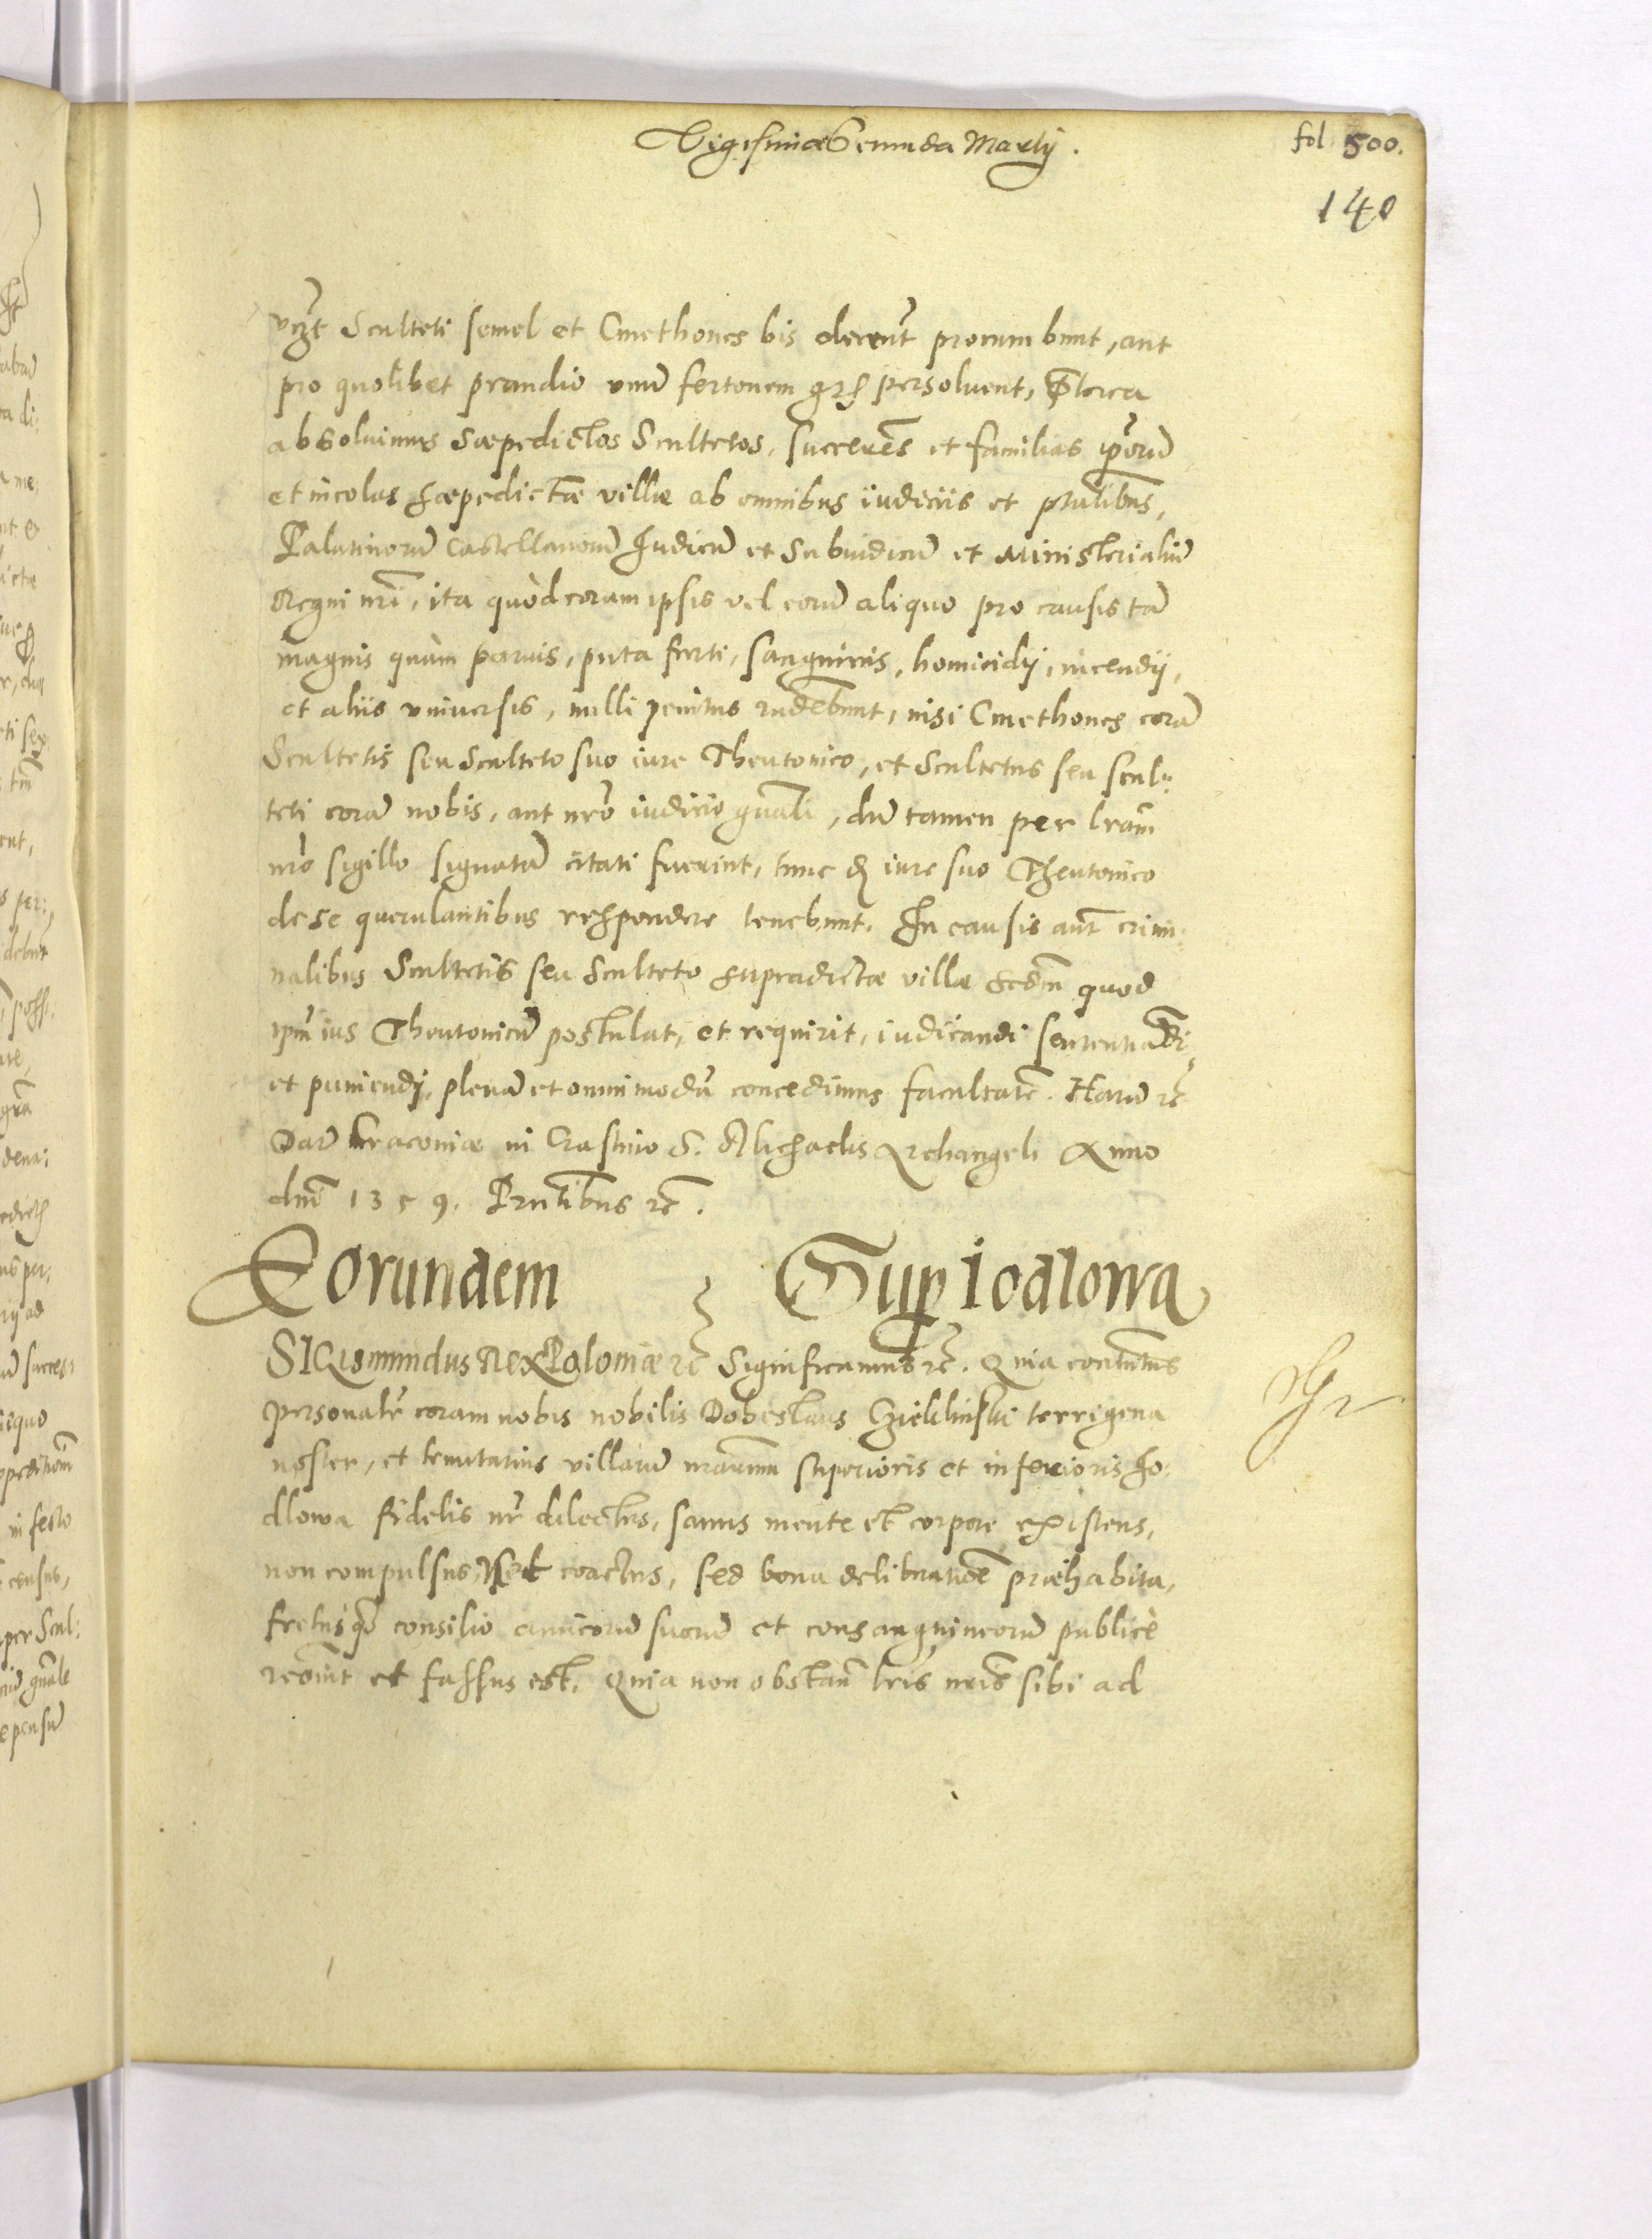 Vigesima Secunda Martÿ.
fol 500.
140
vczt Sculteti semel et Cmethones bis decreut procurabunt, aut
pro quolibet prandio vnu fertonem grs persoluent, Prterea
absoluimus Sæpedictos Scultetos, succeres et familias iporu
et incolas sæpedictæ villæ ab omnibus iudicijs et ptatibus,
Palatinoru Castellanoru Judicu et Subiudicu et Ministerialiu
Regni nri, ita quòd coram ipsis vel eoru aliquo pro causis ta
magnis quàm paruis, puta furti, sanguinis, homicidÿ, incendÿ,
et alijs vniuersis, nulli penitus rndebunt, nisi Cmethones cora
Scultetis seu Sculteto suo iure Theutonico, et Scultetus seu scul:
teti cora nobis, aut nro iudicio gnali, du tamen per lram
nro sigillo signata citati fuerint, tunc no iure suo Theutonico
de se querulantibus respondere tenebunt. In causis aut crimi:
nalibus Scultetis seu Sculteto supradictæ villæ scdm quod
ipm ius Theutonicu postulat, et requirit, iudicandi sententiadi,
et puniendi, plena et omnimoda concedimus facultate. Haru rc
Datu Kracouiæ in Crastino S. Michaelis Archangeli Anno
dni 1359. Prntibus rc.
Eorundem Sup Iodlowa
SIGismundus Rex Poloniæ rc Significamus rc. Quia constitutus
personalr coram nobis nobilis Dobeslaus Czielelinski terrigena
noster, et tenutarius villaru nraram superioris et inferioris Jo:
dlowa fidelis nr dilectus, sanus mente et corpore existens,
non compulsus nec coactus, sed bona deliberatioe præhabita,
fretusq consilio amicoru suoru et consanguineoru publicè
recogit et fassus est. Quia non obstan lris nris sibi ad